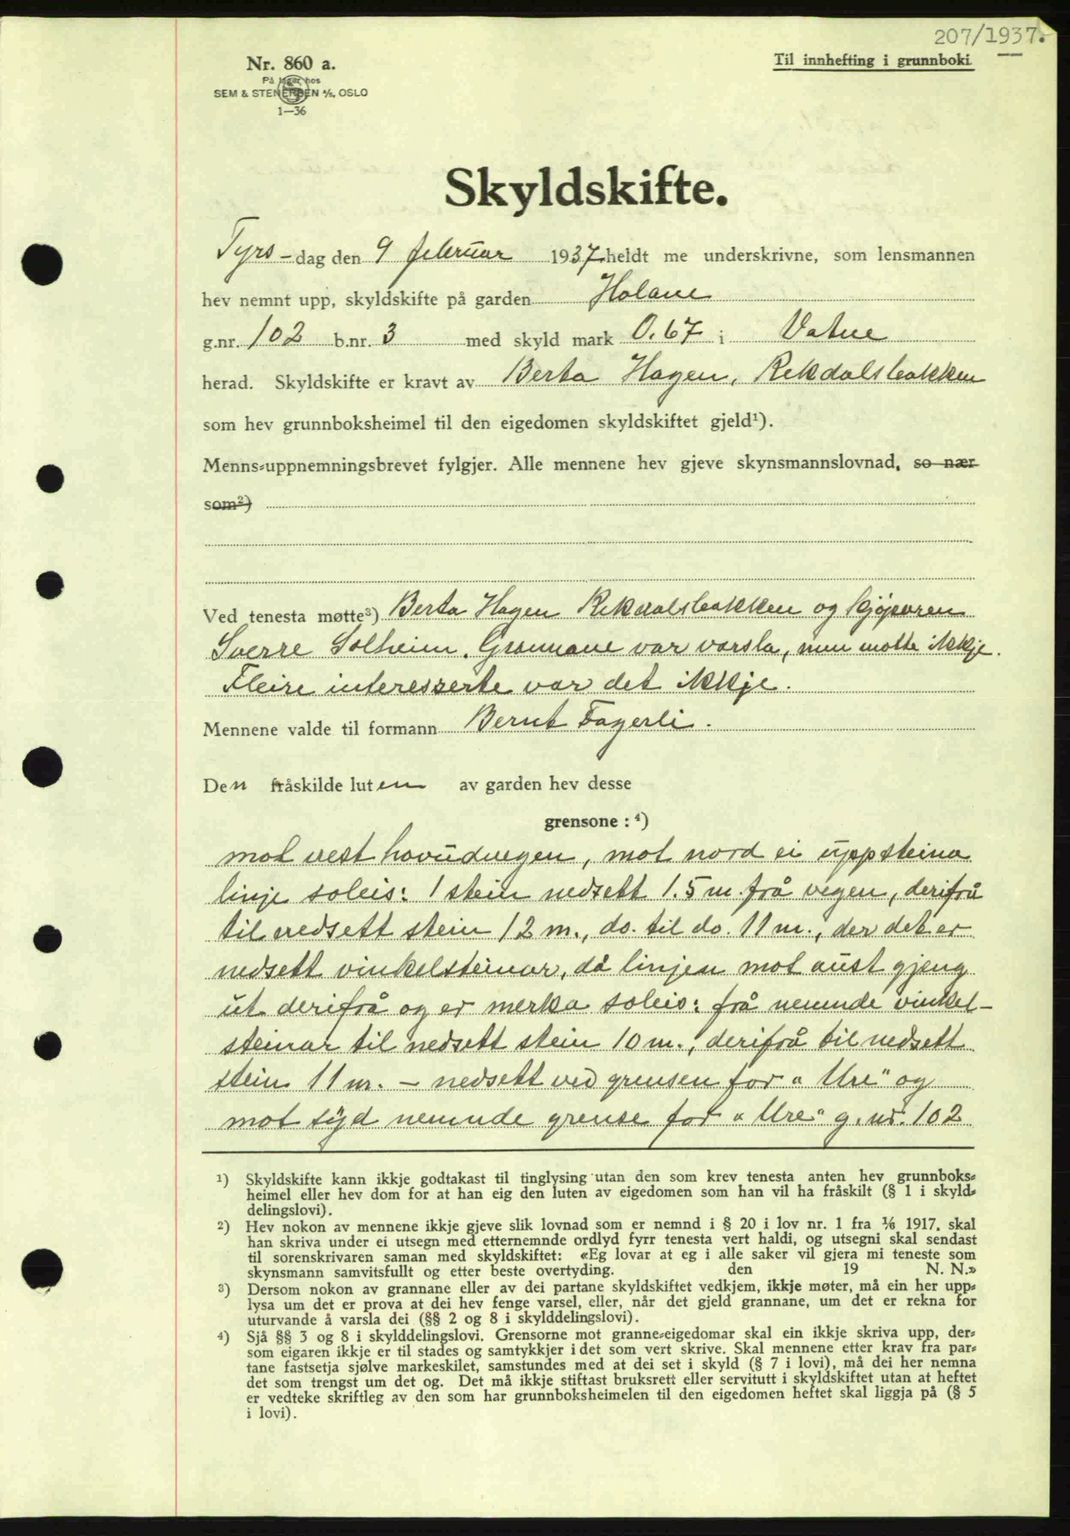 207/1937.
Nr. 860 a.
Til innhefting i grunnboki
På lager hos
SEM & STENERSEN A/S, OSLO
1—36
Skyldskifte.
Tyrs-dag den 9 februar 1937 heldt me underskrivne, som lensmannen
hev nemnt upp, skyldskifte på garden Holane
g.nr. 102 b.nr. 3 med skyld mark 0.67 i Vatne
herad. Skyldskifte er kravt av Berta Hagen, Rekdalsbakken
som hev grunnboksheimel til den eigedomen skyldskiftet gjeld¹).
Menns-uppnemningsbrevet fylgjer. Alle mennene hev gjeve skynsmannslovnad, so nær
som²)
Ved tenesta møtte³) Berta Hagen Rekdalsbakken og kjøparen
Sverre Solheim. Grannane var varsla, men møtte ikkje.
Fleire interesserte var det ikkje.
Mennene valde til formann Bernt Fagerli.
Den fråskilde luten av garden hev desse
grensone : ⁴)
mot vest hovudvegen, mot nord ei uppsteina
linje soleis: 1 stein nedsett 1.5 m. frå vegen, derifrå
til nedsett stein 12 m., do. til do. 11 m., der det er
nedsett vinkelsteinar, då linjen mot aust gjeng
ut derifrå og er merka soleis: frå nemnde vinkel-
steinar til nedsett stein 10 m., derifrå til nedsett
stein 11 m. – nedsett ved grensen for "Ure" og
mot syd nemnde grense for "Ure" g. nr. 102
¹) Skyldskifte kann ikkje godtakast til tinglysing utan den som krev tenesta anten hev grunnboks-
heimel eller hev dom for at han eig den luten av eigedomen som han vil ha fråskilt (§ 1 i skyld-
delingslovi).
²) Hev nokon av mennene ikkje gjeve slik lovnad som er nemnd i § 20 i lov nr. 1 fra 1/6 1917, skal
han skriva under ei utsegn med etternemnde ordlyd fyrr tenesta vert haldi, og utsegni skal sendast
til sorenskrivaren saman med skyldskiftet: «Eg lovar at eg i alle saker vil gjera mi teneste som
skynsmann samvitsfullt og etter beste overtyding. den 19 N. N.»
³) Dersom nokon av grannane eller av dei partane skyldskiftet vedkjem, ikkje møter, må ein her upp-
lysa um det er prova at dei hev fenge varsel, eller, når det gjeld grannane, um det er rekna for
uturvande å varsla dei (§§ 2 og 8 i skylddelingslovi).
⁴) Sjå §§ 3 og 8 i skylddelingslovi. Grensorne mot granne-eigedomar skal ein ikkje skriva upp, der-
som eigaren ikkje er til stades og samtykkjer i det som vert skrive. Skal mennene etter krav fra par-
tane fastsetja sjølve markeskilet, samstundes med at dei set i skyld (§ 7 i lovi), må dei her nemna
det som trengst um det og. Det må ikkje stiftast bruksrett eller servitutt i skyldskiftet utan at heftet
er vedteke skriftleg av den som har grunnboksheimelen til den eigedomen heftet skal liggja på (§ 5
i lovi).